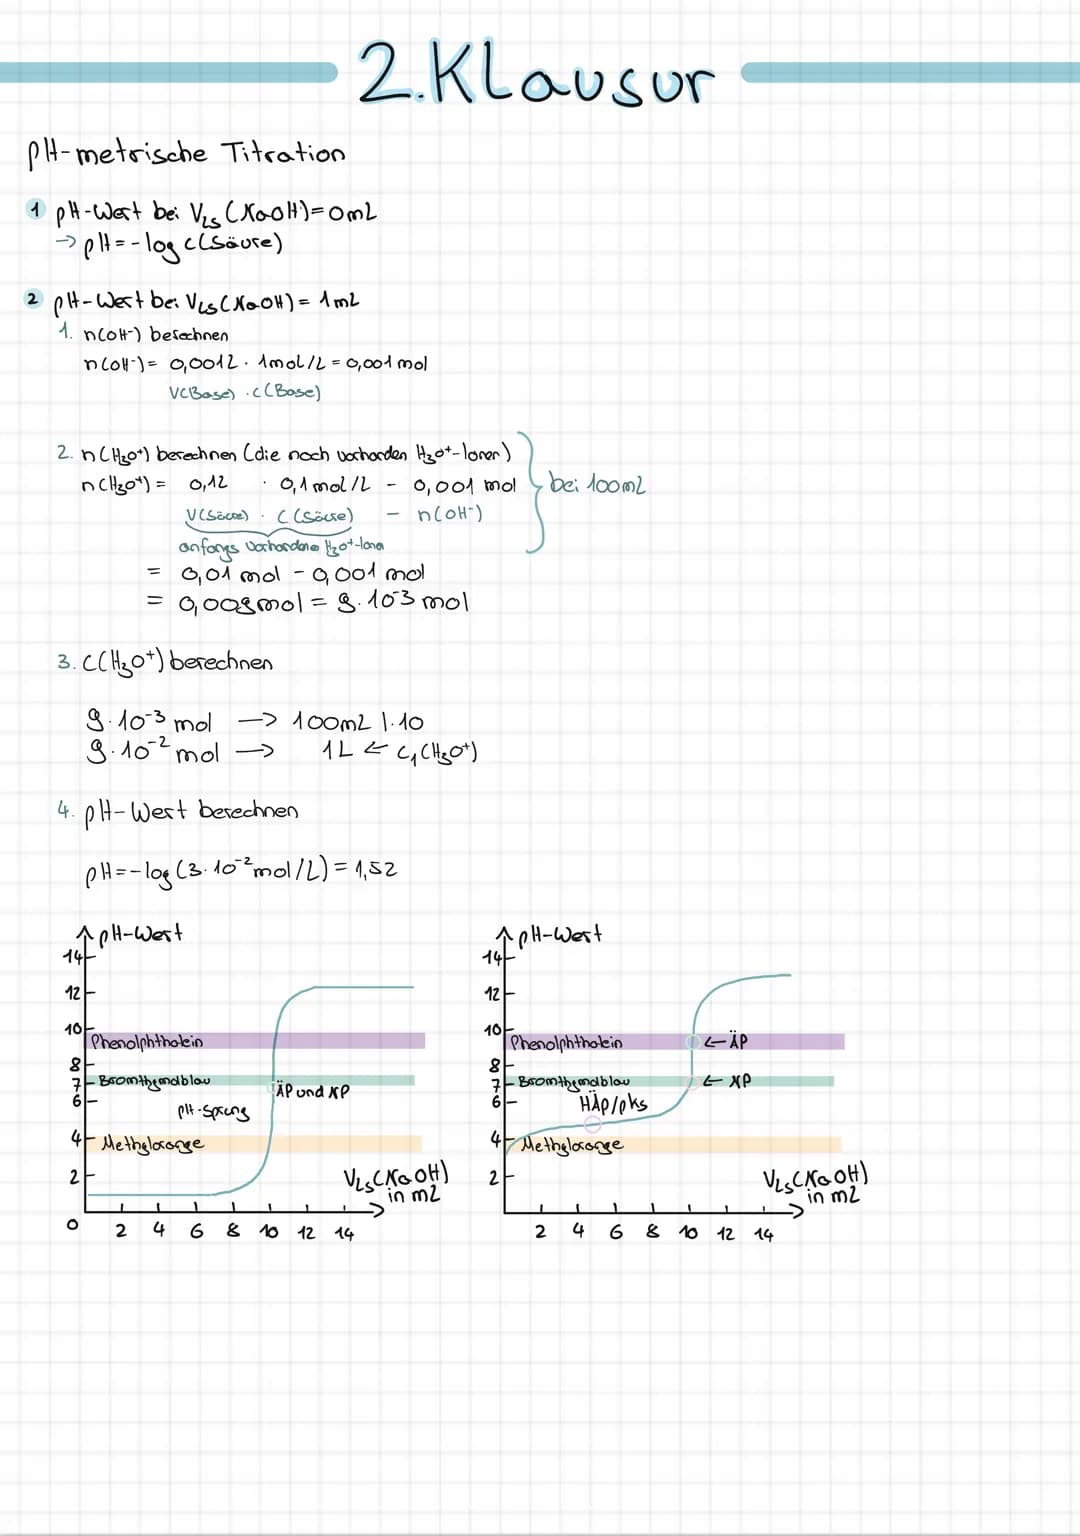 2.Klausur
pH-metrische Titration
1 pH-Wert bei VLS (NaOH)=0mL
→ pH = - log c(Säure)
2 pH-Wert bei VLS (NaOH) = 1mL
1. n(OH⁻) berechnen
n(OH⁻) = 0,001L · 1mol/L = 0,001 mol
V(Base) · c(Base)
2. n(H₃O⁺) berechnen (die noch vorhanden H₃O⁺-Ionen)
n(H₃O⁺) = 0,1L · 0,1 mol/L - 0,001 mol } bei 100mL
V(Säure) · C (Säure) - n(OH⁻)
anfangs vorhandene H₃O⁺-Ionen
= 0,01 mol - 0,001 mol
= 0,009mol = 9·10⁻³ mol
3. C(H₃O⁺) berechnen
9·10⁻³ mol → 100mL |·10
9·10⁻² mol → 1L ← C₁(H₃O⁺)
4. pH-Wert berechnen
pH=-log (3·10⁻² mol/L) = 1,52
pH-Wert
14
12
10
Phenolphthalein
8
7 Bromthymolblau
6
ÄP und NP
pH-Sprung
4 Methylorange
2
VLS (NaOH)
in mL
0 2 4 6 8 10 12 14
pH-Wert
14
12
10
Phenolphthalein ← ÄP
8
7 Bromthymolblau ← NP
6
HÄP/pks
4 Methylorange
2
VLS (NaOH)
in mL
2 4 6 8 10 12 14